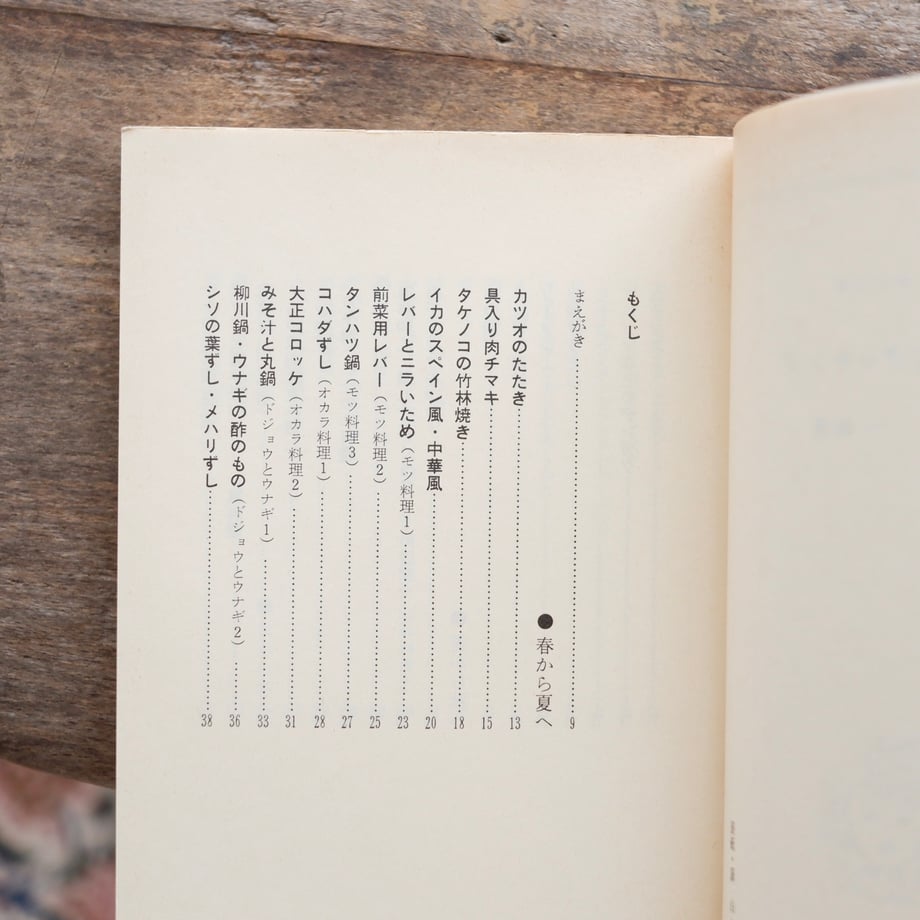 もくじ
まえがき……9
●春から夏へ
カツオのたたき……13
具入り肉チマキ……15
タケノコの竹林焼き……18
イカのスペイン風・中華風……20
レバーとニラいため（モツ料理1）……23
前菜用レバー（モツ料理2）……25
タンハツ鍋（モツ料理3）……27
コハダずし（オカラ料理1）……28
大正コロッケ（オカラ料理2）……31
みそ汁と丸鍋（ドジョウとウナギ1）……33
柳川鍋・ウナギの酢のもの（ドジョウとウナギ2）……36
シソの葉ずし・メハリずし……38